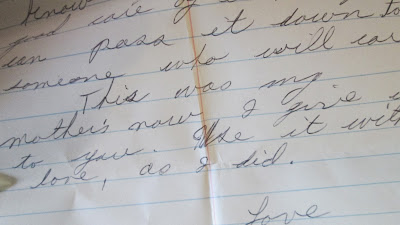 good care of
can pass it down to
someone who will car
This was my
mother's now I give i
to you. Use it with
love, as I did.
Love